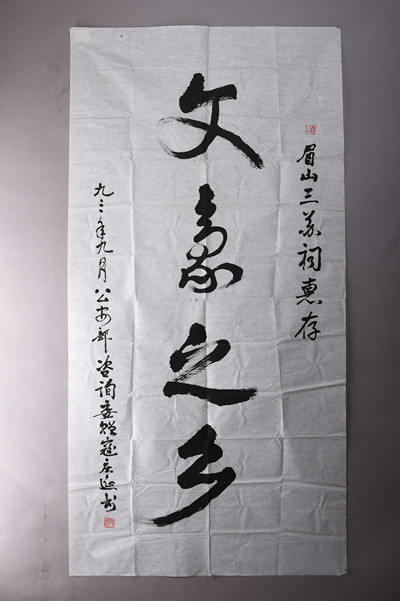 眉山三苏祠惠存
文豪之乡
九三年九月公安部咨询委赠寇庆延书